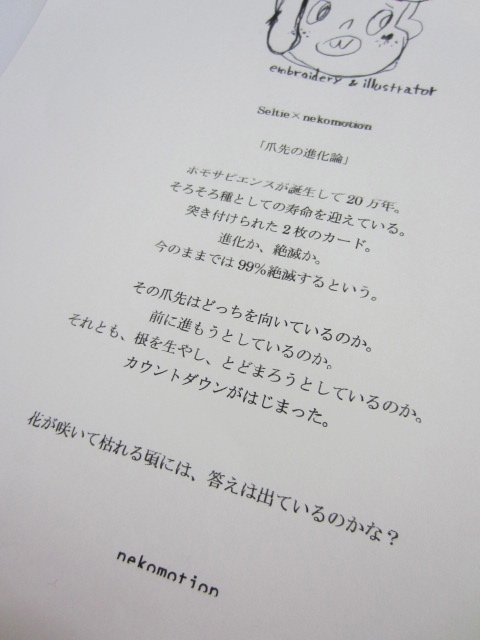 embroidery & illustrator
Seltie×nekomotion
「爪先の進化論」
ホモサピエンスが誕生して20万年。
そろそろ種としての寿命を迎えている。
突き付けられた2枚のカード。
進化か、絶滅か。
今のままでは99%絶滅するという。
その爪先はどっちを向いているのか。
前に進もうとしているのか。
それとも、根を生やし、とどまろうとしているのか。
カウントダウンがはじまった。
花が咲いて枯れる頃には、答えは出ているのかな？
nekomotion